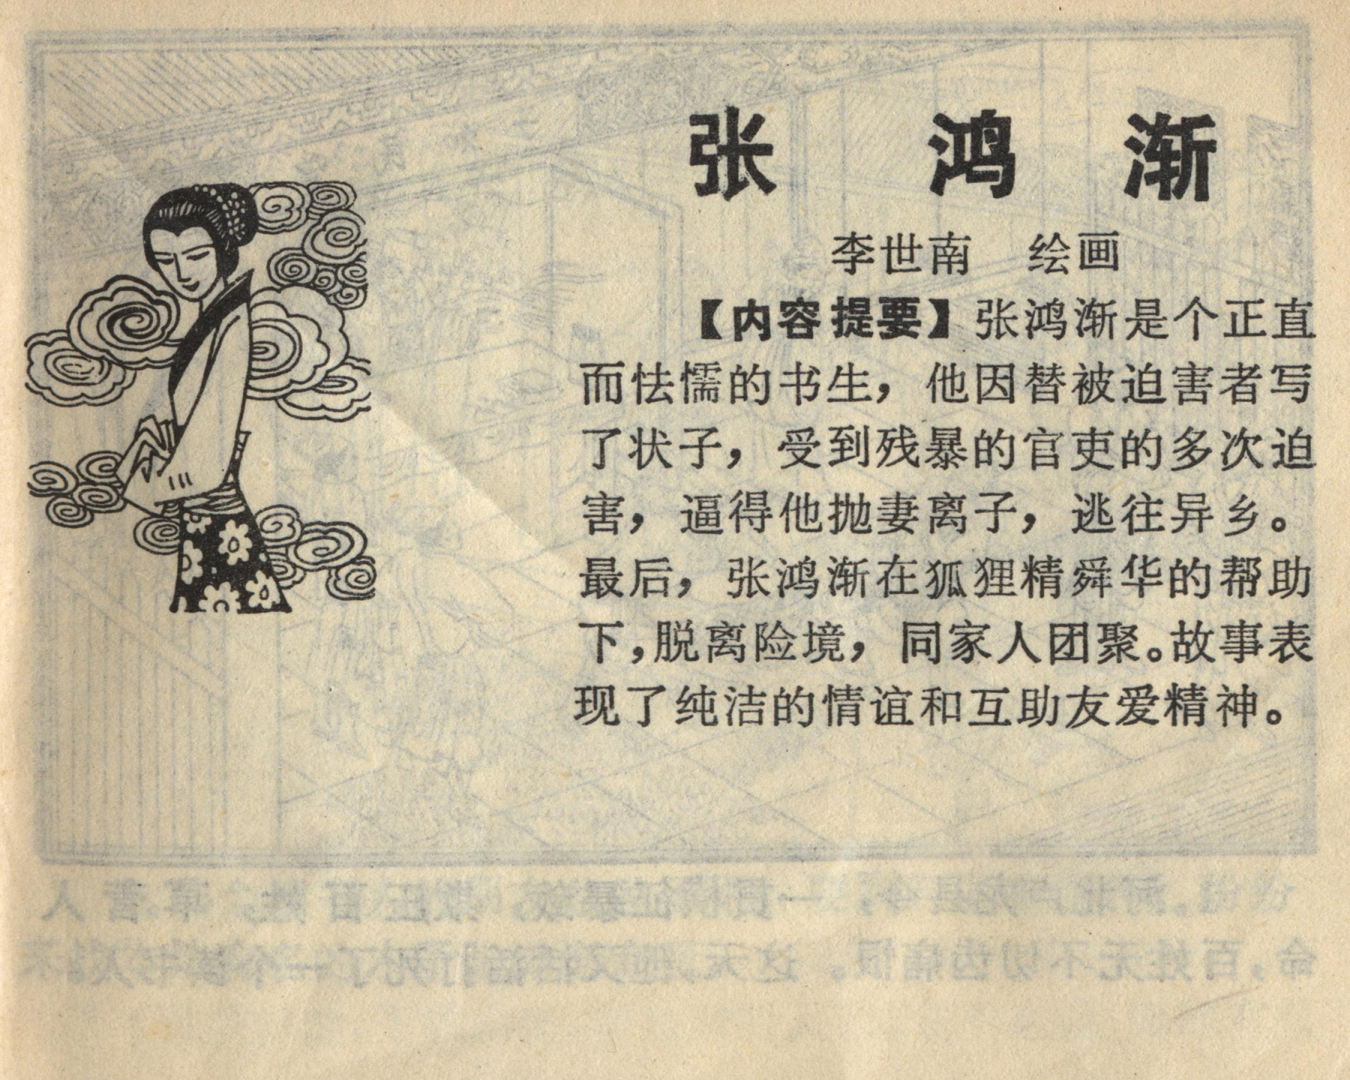 张鸿渐
李世南 绘画
【内容提要】张鸿渐是个正直
而怯懦的书生，他因替被迫害者写
了状子，受到残暴的官吏的多次迫
害，逼得他抛妻离子，逃往异乡。
最后，张鸿渐在狐狸精舜华的帮助
下，脱离险境，同家人团聚。故事表
现了纯洁的情谊和互助友爱精神。